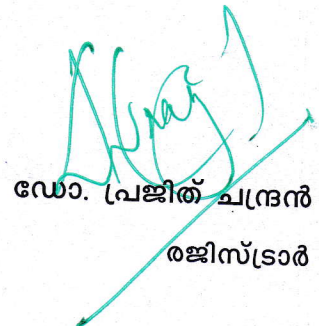 ഡോ. പ്രജിത് ചന്ദ്രൻ
രജിസ്ട്രാർ